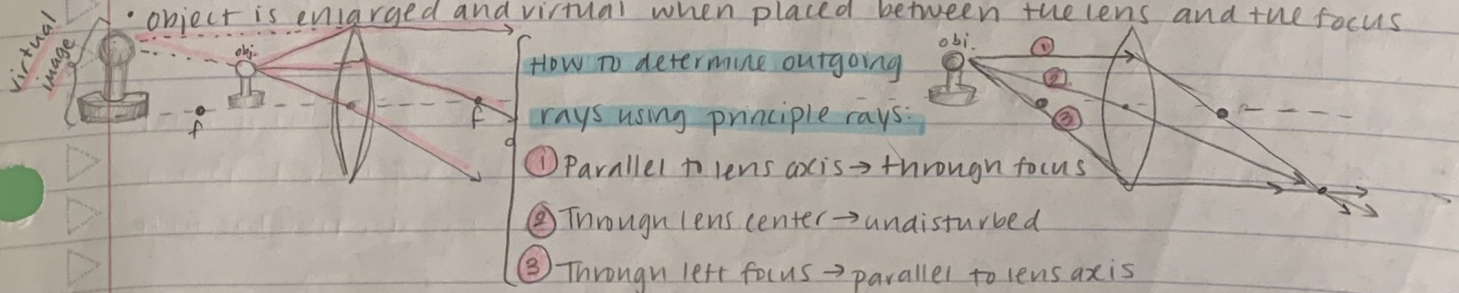 • object is enlarged and virtual when placed between the lens and the focus
virtual
image
obj.
f
f
How to determine outgoing
rays using principle rays:
① Parallel to lens axis → through focus
② Through lens center → undisturbed
③ Through left focus → parallel to lens axis
obj.
①
②
③